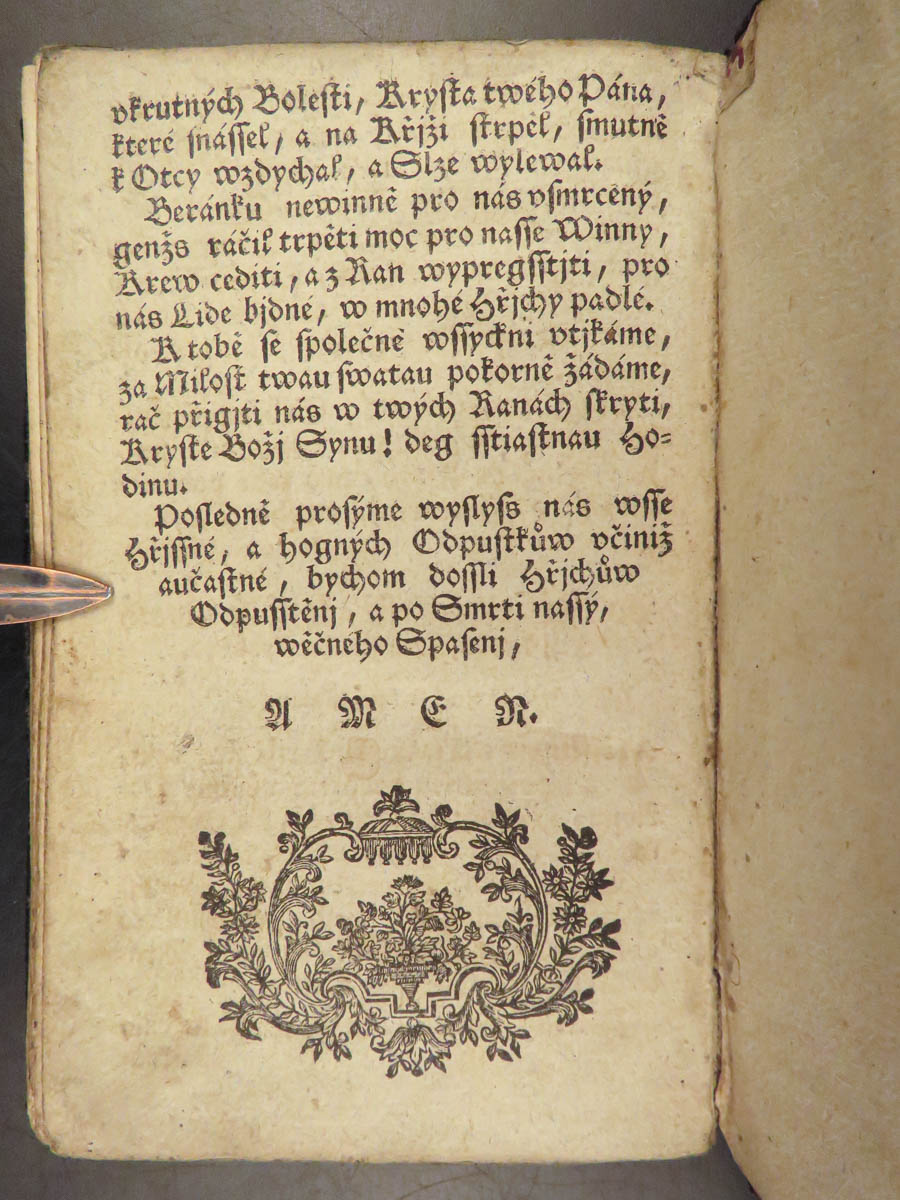 vkrutných Bolesti, Krysta twého Pána,
které snássel, a na Křjži strpěl, smutně
k Otcy wzdychal, a Slze wylewal.
Beránku newinně pro nás vsmrcený,
genžs ráčil trpěti moc pro nasse Winny,
Krew cediti, a z Ran wypregsstjti, pro
nás Lide bjdné, w mnohé Hřjchy padlé.
K tobě se společně wssyckni vtjkáme,
za Milost twau swatau pokorně žádáme,
rač přigjti nás w twých Ranách skryti,
Kryste Božj Synu! deg sstiastnau Ho=
dinu.
Posledně prosýme wyslyss nás wsse
Hřjssné, a hogných Odpustkůw včiniž
aučastné, bychom dossli Hřjchůw
Odpusstěnj, a po Smrti nassý,
wěčného Spasenj,
A M E N.